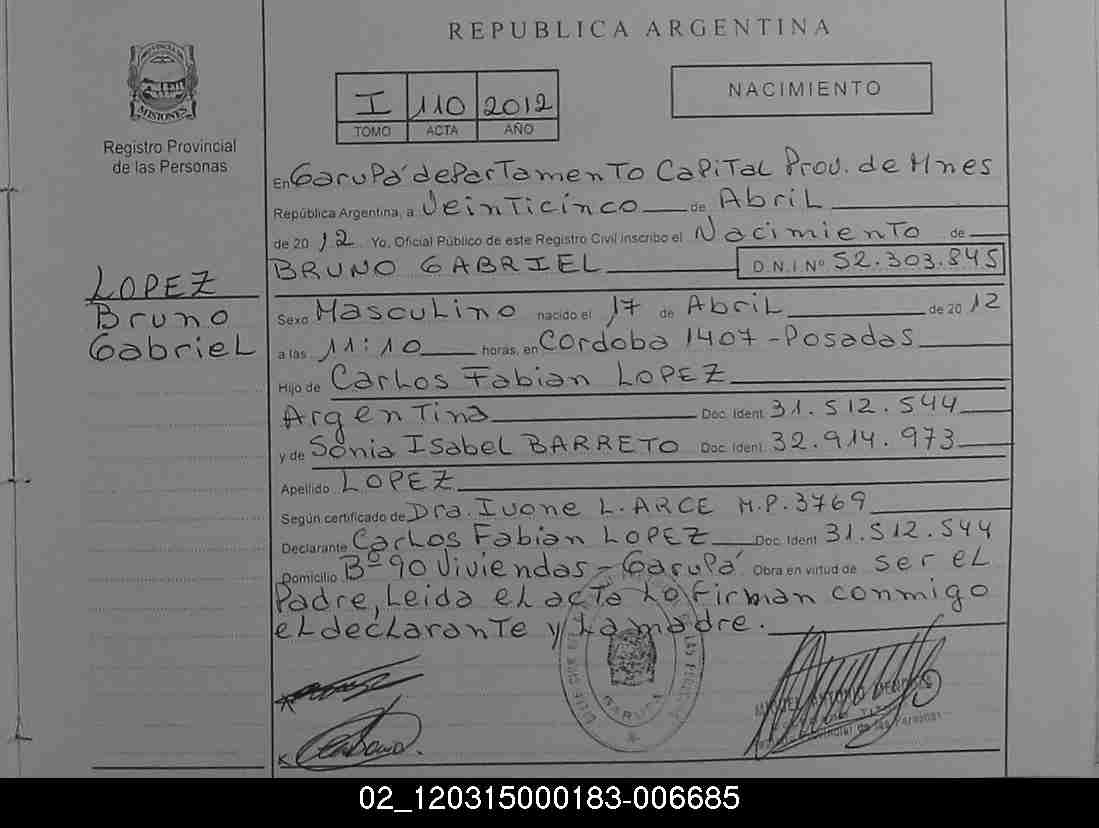 REPUBLICA ARGENTINA
PROVINCIA DE
MISIONES
Registro Provincial
de las Personas
I 110 2012
TOMO ACTA AÑO
NACIMIENTO
En Garupá departamento Capital Prov. de Mnes
República Argentina, a Veinticinco de Abril
de 2012 Yo, Oficial Público de este Registro Civil inscribo el Nacimiento de
BRUNO GABRIEL D.N.I.Nº 52.303.845
LOPEZ
Bruno
Gabriel
Sexo Masculino nacido el 17 de Abril de 2012
a las 11:10 horas, en Cordoba 1407 - Posadas
Hijo de Carlos Fabian LOPEZ
Argentina Doc. Ident. 31.512.544
y de Sonia Isabel BARRETO Doc. Ident. 32.914.973
Apellido LOPEZ
Según certificado de Dra. Ivone L. ARCE M.P. 3769
Declarante Carlos Fabian LOPEZ Doc. Ident 31.512.544
Domicilio Bº 90 Viviendas - Garupá Obra en virtud de ser el
Padre, Leida el acta La Firman conmigo
el declarante y La madre.
GARUPA
02_120315000183-006685